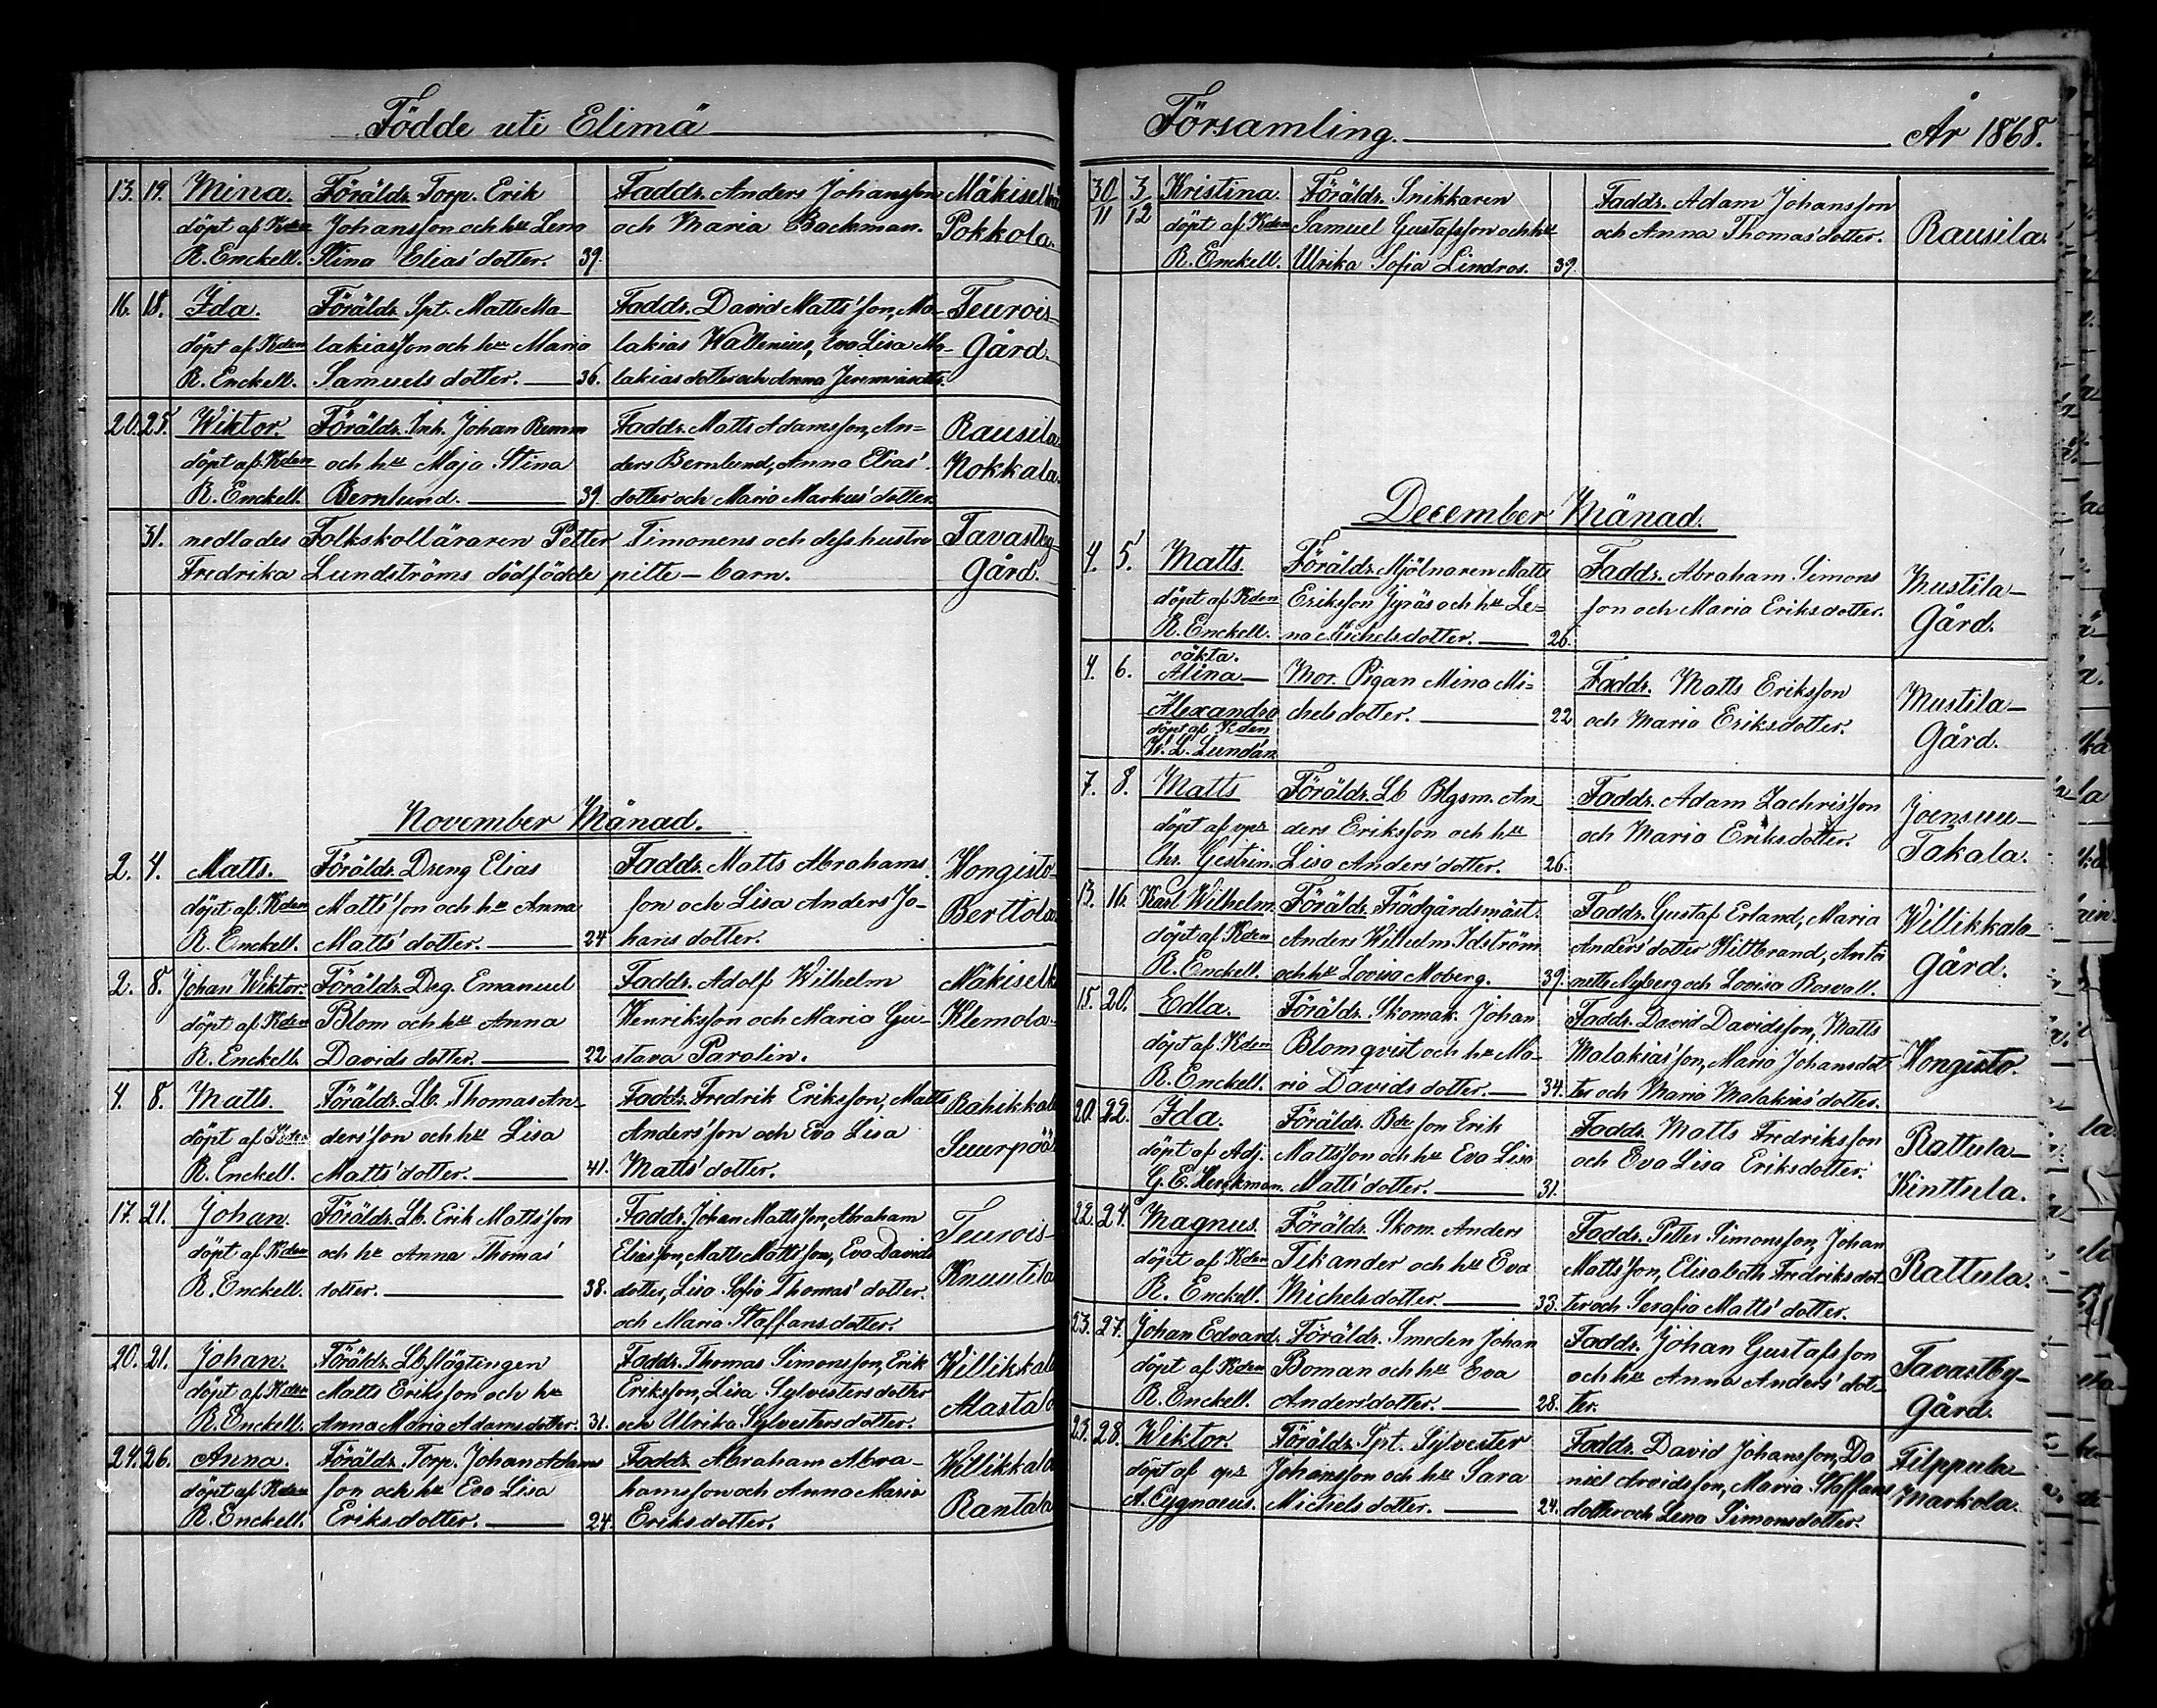 Födde uti Elimä
13. 19. Mina. Föräldr. Torp. Erik Faddr. Anders Johansson Mäkiselkä
döpt af Kden Johansson och hu Lena och Maria Backman. Pokkola.
R. Enckell. Stina Elias' dotter. 39.
16. 18. Ida. Föräldr. Spt. Matts Ma- Faddr. David Matts'son, Ma- Teurois-
döpt af Kden lakiasson och hu Maria lakias Wallenius, Eva Lisa Ma- Gård.
R. Enckell. Samuels dotter. 36. lakias dotter och Anna Jeremiasdttr.
20. 25. Wiktor. Föräldr. Inh. Johan Remm Faddr. Matts Adamsson, An- Rausila
döpt af Kden och hu Maja Stina ders Bernlund, Anna Elias' Kokkala.
R. Enckell. Bernlund. 39. dotter och Maria Markus' dotter.
31. nedlades Folkskolläraren Petter Timonens och dess hustru Tavastby-
Fredrika Lundströms dödfödde pilte-barn. Gård.
November Månad.
2. 4. Matts. Föräldr. Dreng Elias Faddr. Matts Abrahams Hongisto-
döpt af Kden Matts'son och hu Anna son och Lisa Anders Jo- Berttola
R. Enckell. Matts' dotter. 24 hans dotter.
2. 8. Johan Wiktor. Föräldr. Drg. Emanuel Faddr. Adolf Wilhelm Mäkiselk
döpt af Kden Blom och hu Anna Henriksson och Maria Gu- Klemola
R. Enckell. Davids dotter. 22 stava Parolin.
4. 8. Matts. Föräldr. Lb. Thomas An- Faddr. Fredrik Eriksson, Matts Rahikkala
döpt af Kden ders'son och hu Lisa Anders'son och Eva Lisa Suurpää
R. Enckell. Matts' dotter. 41. Matts' dotter.
17. 21. Johan. Föräldr. Lb. Erik Matts'son Faddr. Johan Matts'son, Abraham Teurois-
döpt af Kden och hu Anna Thomas' Eliasson, Matts Matts'son, Eva Davids Knuutila
R. Enckell. dotter. 38. dotter, Lisa Sofia Thomas' dotter
och Maria Staffans dotter.
20. 21. Johan. Föräldr. Lb. slägtingen Faddr. Thomas Simonsson, Erik Willikkala
döpt af Kden Matts Eriksson och hu Eriksson, Lisa Sylvesters dotter Alastalo
R. Enckell. Anna Maria Adams dotter. 31. och Ulrika Sylvesters dotter.
24. 26. Anna. Föräldr. Torp. Johan Adams Faddr. Abraham Abra- Willikkala
döpt af Kden son och hu Eva Lisa hamsson och Anna Maria Rantala
R. Enckell. Eriks dotter. 24. Eriks dotter.
Församling. År 1868.
30/11 3/12 Kristina. Föräldr. Snikkaren Faddr. Adam Johansson
döpt af Kden Samuel Gustafsson och hu och Anna Thomas' dotter. Rausila.
R. Enckell. Ulrika Sofia Lindros. 39.
December Månad.
4. 5. Matts. Föräldr. Mjölnaren Matts Faddr. Abraham Simons Mustila-
döpt af Kden Eriksson Jyräs och hu Le- son och Maria Eriks dotter. Gård.
R. Enckell. na Michels dotter. 26.
oäkta.
4. 6. Alina- Mor. Pigan Mina Mi- Faddr. Matts Eriksson Mustila-
Alexandra chels dotter. 22 och Maria Eriks dotter. Gård.
döpt af Kden
W. L. Lundán.
7. 8. Matts Föräldr. Lb Blgsm. An- Faddr. Adam Zachris'son Joensuu-
döpt af vpr ders Eriksson och hu och Maria Eriks dotter. Takala.
Chr. Gestrin. Lisa Anders' dotter. 26.
13. 16. Karl Wilhelm. Föräldr. Trädgårdsmäst. Faddr. Gustaf Erland, Maria Willikkala-
döpt af Kden Anders Wilhelm Idström Anders' dotter Wittbrand, Antoi Gård.
R. Enckell. och hu Lovisa Moberg. 39. nette Nyberg och Lovisa Rosvall.
15. 20. Edla. Föräldr. Skomak. Johan Faddr. David Davidsson, Matts
döpt af Kden Blomqvist och hu Ma- Malakias'son, Maria Johansdot- Hongisto.
R. Enckell. ria Davids dotter. 34. ter och Maria Malakias' dotter.
20. 22. Ida. Föräldr. Bde son Erik Faddr. Matts Fredriksson Rattula-
döpt af Adj. Matts'son och hu Eva Lisa och Eva Lisa Eriks dotter. Kinttula.
G. E. Herckman. Matts' dotter. 31.
22. 24. Magnus. Föräldr. Skom. Anders Faddr. Petter Simonsson, Johan
döpt af Kden Tikander och hu Eva Matts'son, Elisabeth Fredriksdot- Rattula.
R. Enckell. Michels dotter. 33. ter och Serafia Matts' dotter.
23. 27. Johan Edvard. Föräldr. Smeden Johan Faddr. Johan Gustafsson Tavastby-
döpt af Kden Boman och hu Eva och hu Anna Anders' dot-
R. Enckell. Anders' dotter. 28. ter. Gård.
23. 28. Wiktor. Föräldr. Spt. Sylvester Faddr. David Johansson, Da Filppula-
döpt af vpr Johansson och hu Sara niel Arvidsson, Maria Staffans Markola.
A. Cygnaeus. Michels dotter. 24. dotter och Lena Simons dotter.